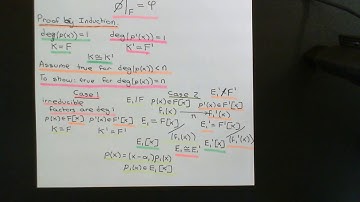 ∅|F = φ
Proof by Induction
deg(p(x))=1 deg(p'(x))=1
K=F K'=F'
K≅K'
Assume true for deg(p(x))<n
To show: true for deg(p(x))=n
Case 1 Case 2 E1'/F'
irreducible E1/F p(x)∈F[x] p'(x)∈F'[x]
factors are deg 1 f1(x) f1'(x)
p(x)∈F[x] p'(x)∈F'[x] E1=F[x] n E1'=F'[x]
K=F K'=F' (f1(x)) (f1'(x))
E1[x] E1≅E1' E1'[x]
p(x)=(x-α1)p1(x)
p1(x)∈E1[x]